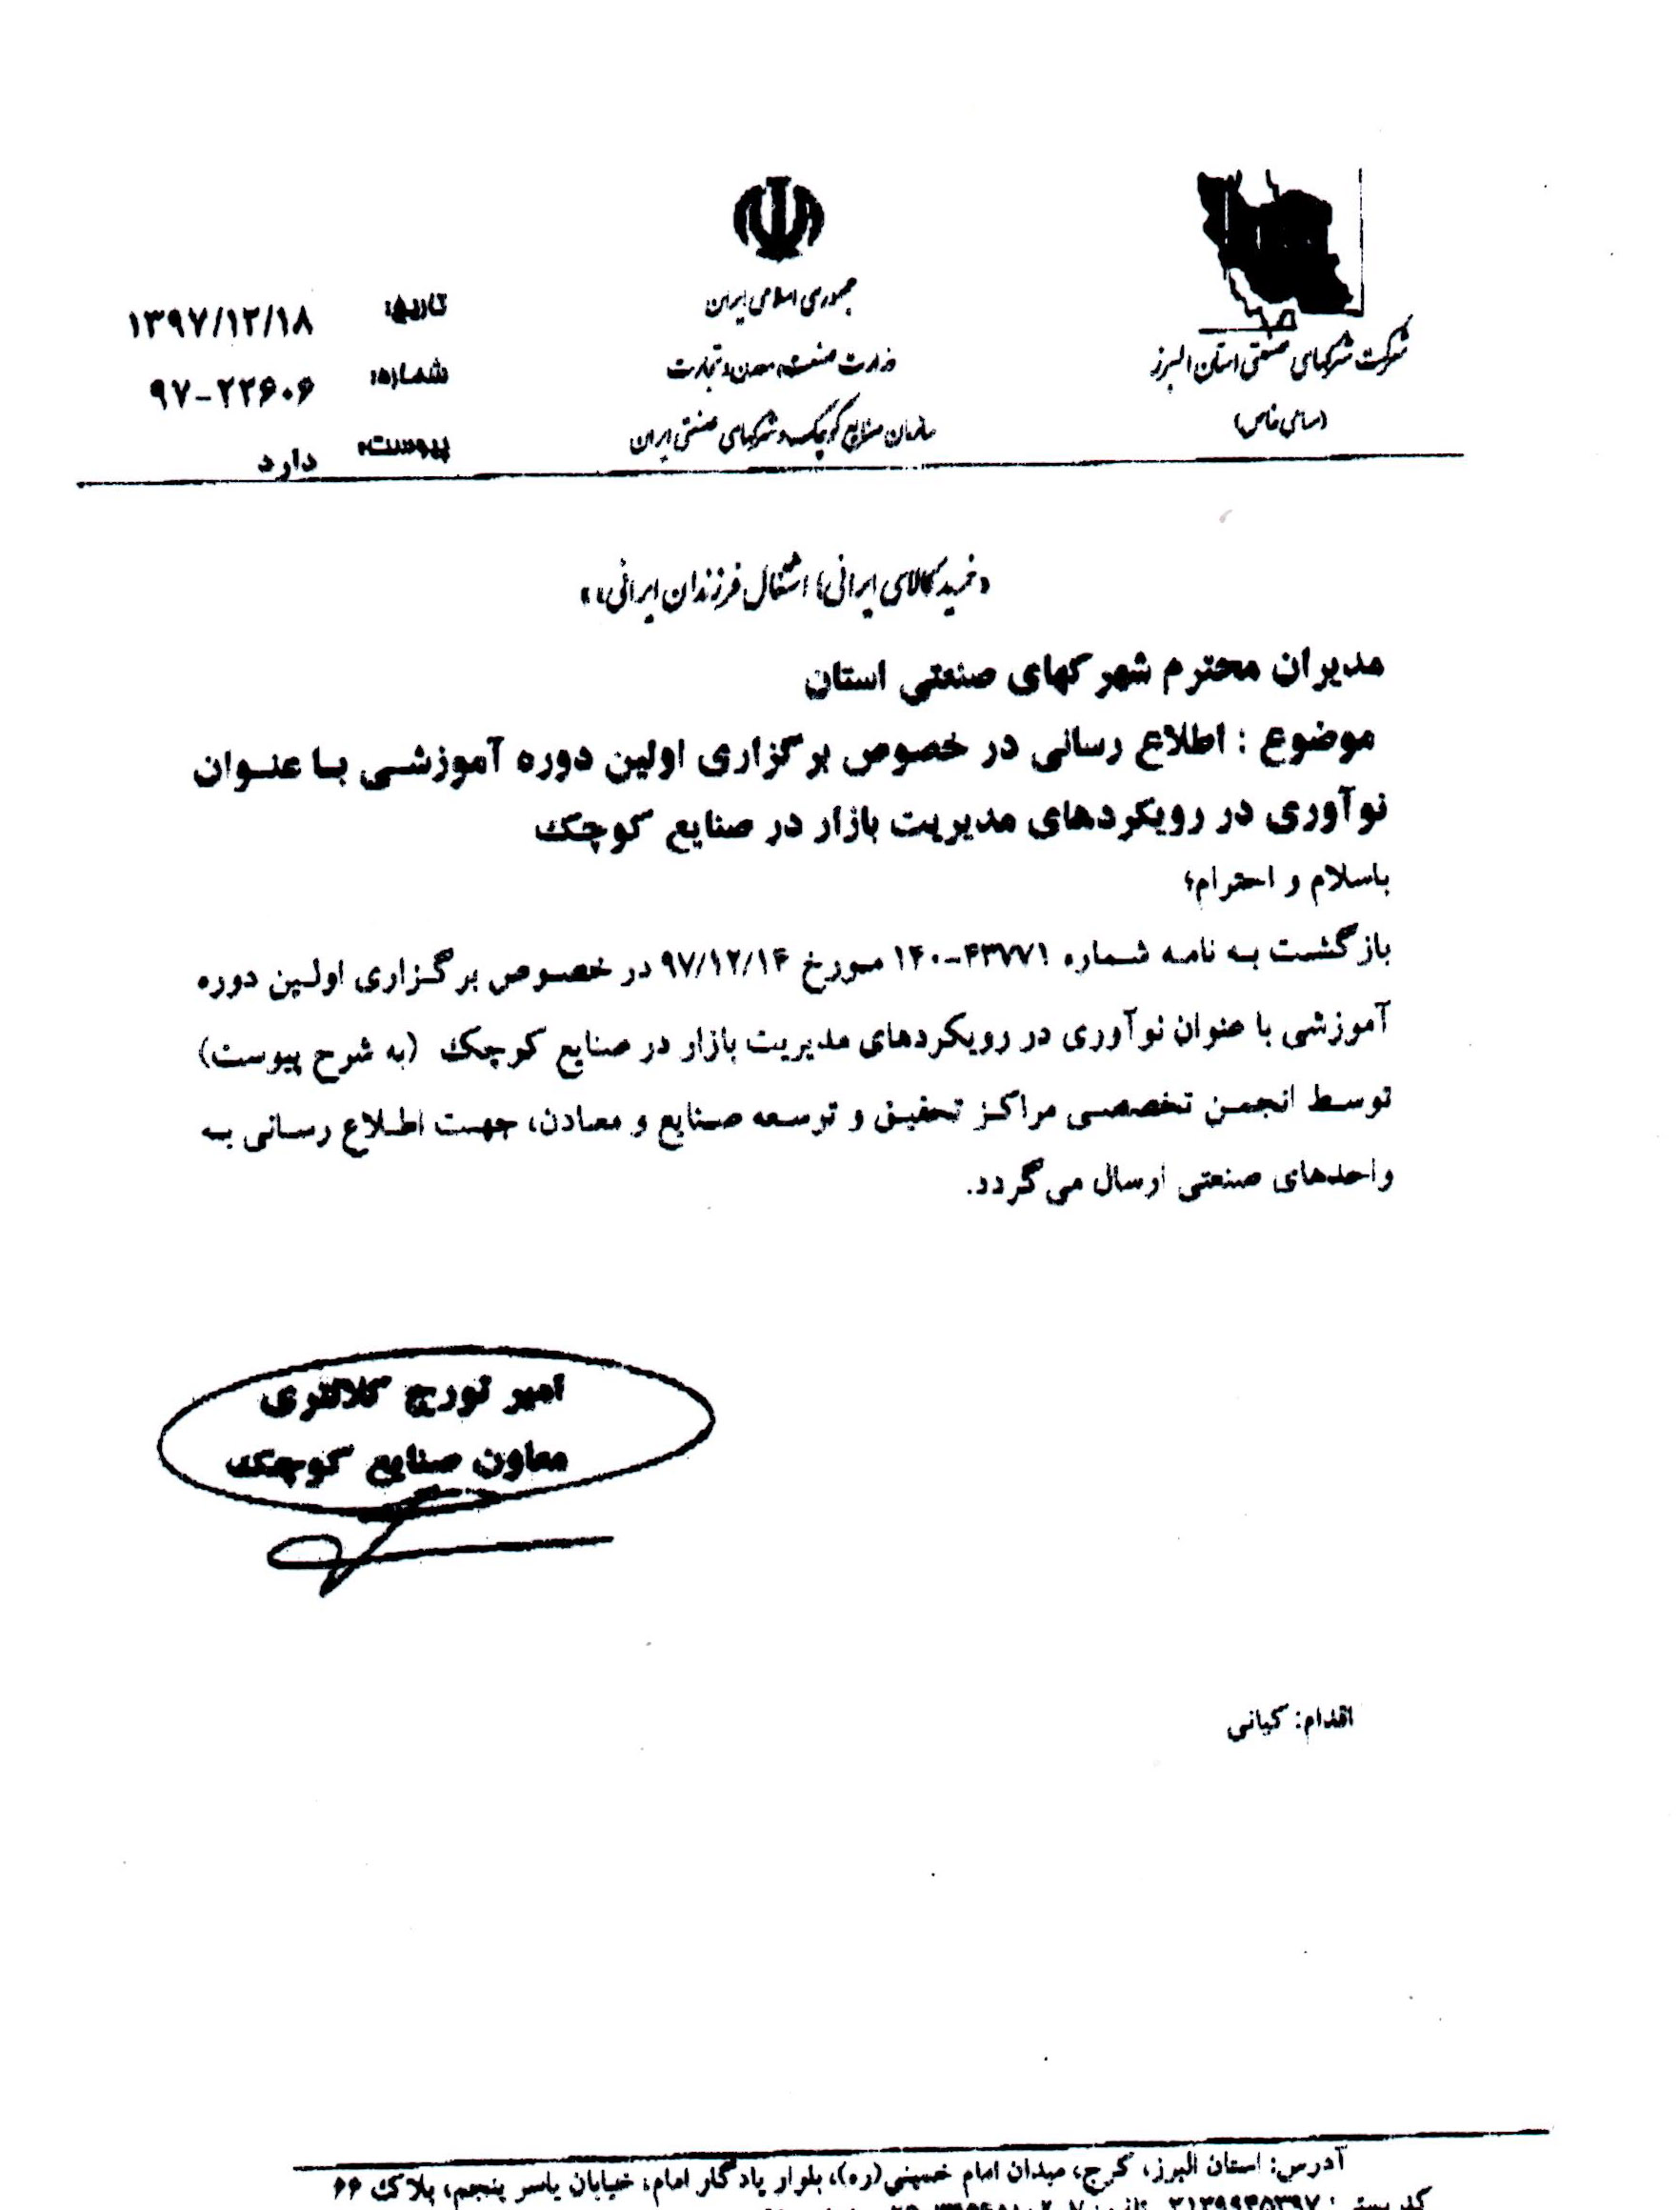 شرکت شهرکهای صنعتی استان البرز
(سهامی خاص)
جمهوری اسلامی ایران
وزارت صنعت، معدن و تجارت
سازمان صنایع کوچک و شهرکهای صنعتی ایران
تاریخ: ۱۳۹۷/۱۲/۱۸
شماره: ۹۷-۲۲۶۰۶
پیوست: دارد
«خرید کالای ایرانی، اشتغال فرزندان ایرانی»
مدیران محترم شهرکهای صنعتی استان
موضوع : اطلاع رسانی در خصوص برگزاری اولین دوره آموزشی با عنوان
نوآوری در رویکردهای مدیریت بازار در صنایع کوچک
باسلام و احترام؛
بازگشت به نامه شماره ۴۳۷۷۱-۱۴۰ مورخ ۹۷/۱۲/۱۴ در خصوص برگزاری اولین دوره
آموزشی با عنوان نوآوری در رویکردهای مدیریت بازار در صنایع کوچک (به شرح پیوست)
توسط انجمن تخصصی مراکز تحقیق و توسعه صنایع و معادن، جهت اطلاع رسانی به
واحدهای صنعتی ارسال می گردد.
امیر تورج کلانتری
معاون صنایع کوچک
اقدام: کیانی
آدرس: استان البرز، کرج، میدان امام خمینی(ره)، بلوار یادگار امام، خیابان یاسر پنجم، پلاک ۶۶